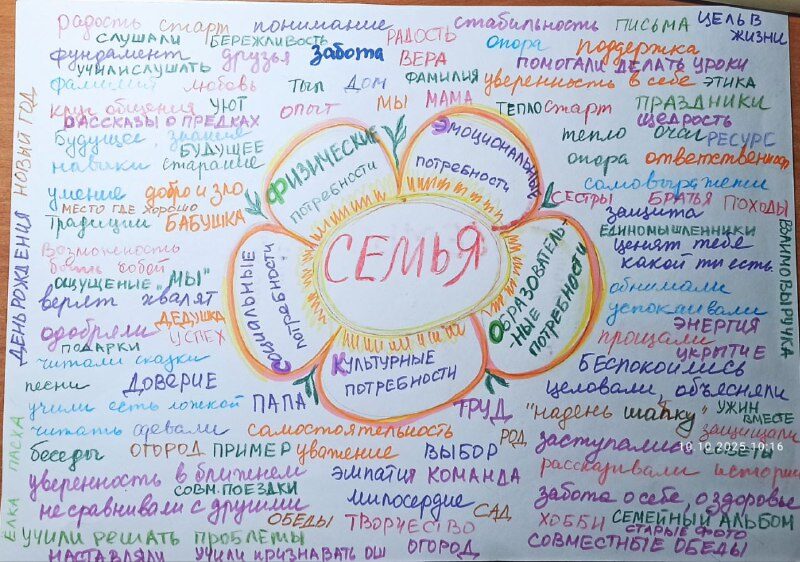 радость старт понимание стабильность ПИСЬМА ЦЕЛЬ В ЖИЗНИ
СЛУШАЛИ БЕРЕЖЛИВОСТЬ РАДОСТЬ
фундамент друзья забота ВЕРА опора поддержка
УЧИЛИ СЛУШАТЬ ПОМОГАЛИ ДЕЛАТЬ УРОКИ
любовь тыл ДОМ ФАМИЛИЯ уверенность в себе ЭТИКА
круг общения УЮТ ОПЫТ МЫ МАМА ТЕПЛО старт ПРАЗДНИКИ
РАССКАЗЫ О ПРЕДКАХ ЩЕДРОСТЬ
будущее, знания БУДУЩЕЕ тепло очаг РЕСУРС
навыки старание опора ответственность
умение добро и зло самовыражение
СЕСТРЫ БРАТЬЯ ПОХОДЫ
МЕСТО ГДЕ ХОРОШО защита
Традиции БАБУШКА ЕДИНОМЫШЛЕННИКИ
Возможность ценят тебя
быть собой какой ты есть.
ощущение "МЫ" обнимали
верят хвалят успокаивали
ДЕДУШКА ЭНЕРГИЯ
одобряли УСПЕХ прощали
ПОДАРКИ УКРЫТИЕ
читали сказки БЕСПОКОИЛИСЬ
песни ДОВЕРИЕ целовали, объясняли
учили есть ложкой ПАПА ТРУД "надень шапку" УЖИН ВМЕСТЕ
читать одевали самостоятельность РОД защищали
беседы ОГОРОД ПРИМЕР уважение ВЫБОР заступались
10.10.2025 10:16
уверенность в ближнем эмпатия КОМАНДА рассказывали истории
СОВМ. ПОЕЗДКИ
не сравнивали с другими милосердие САД забота о себе, о здоровье
ОБЕДЫ ТВОРЧЕСТВО ХОББИ СЕМЕЙНЫЙ АЛЬБОМ
УЧИЛИ РЕШАТЬ ПРОБЛЕМЫ СТАРЫЕ ФОТО
НАСТАВЛЯЛИ УЧИЛИ ПРИЗНАВАТЬ ОШ ОГОРОД СОВМЕСТНЫЕ ОБЕДЫ
НОВЫЙ ГОД
ДЕНЬ РОЖДЕНИЯ
ПАСХА
ЕЛКА
ВЗАИМОВЫРУЧКА
ФИЗИЧЕСКИЕ
ПОТРЕБНОСТИ
ЭМОЦИОНАЛЬНЫЕ
ПОТРЕБНОСТИ
СЕМЬЯ
СОЦИАЛЬНЫЕ
ПОТРЕБНОСТИ
ОБРАЗОВАТЕЛЬ-
НЫЕ
ПОТРЕБНОСТИ
КУЛЬТУРНЫЕ
ПОТРЕБНОСТИ